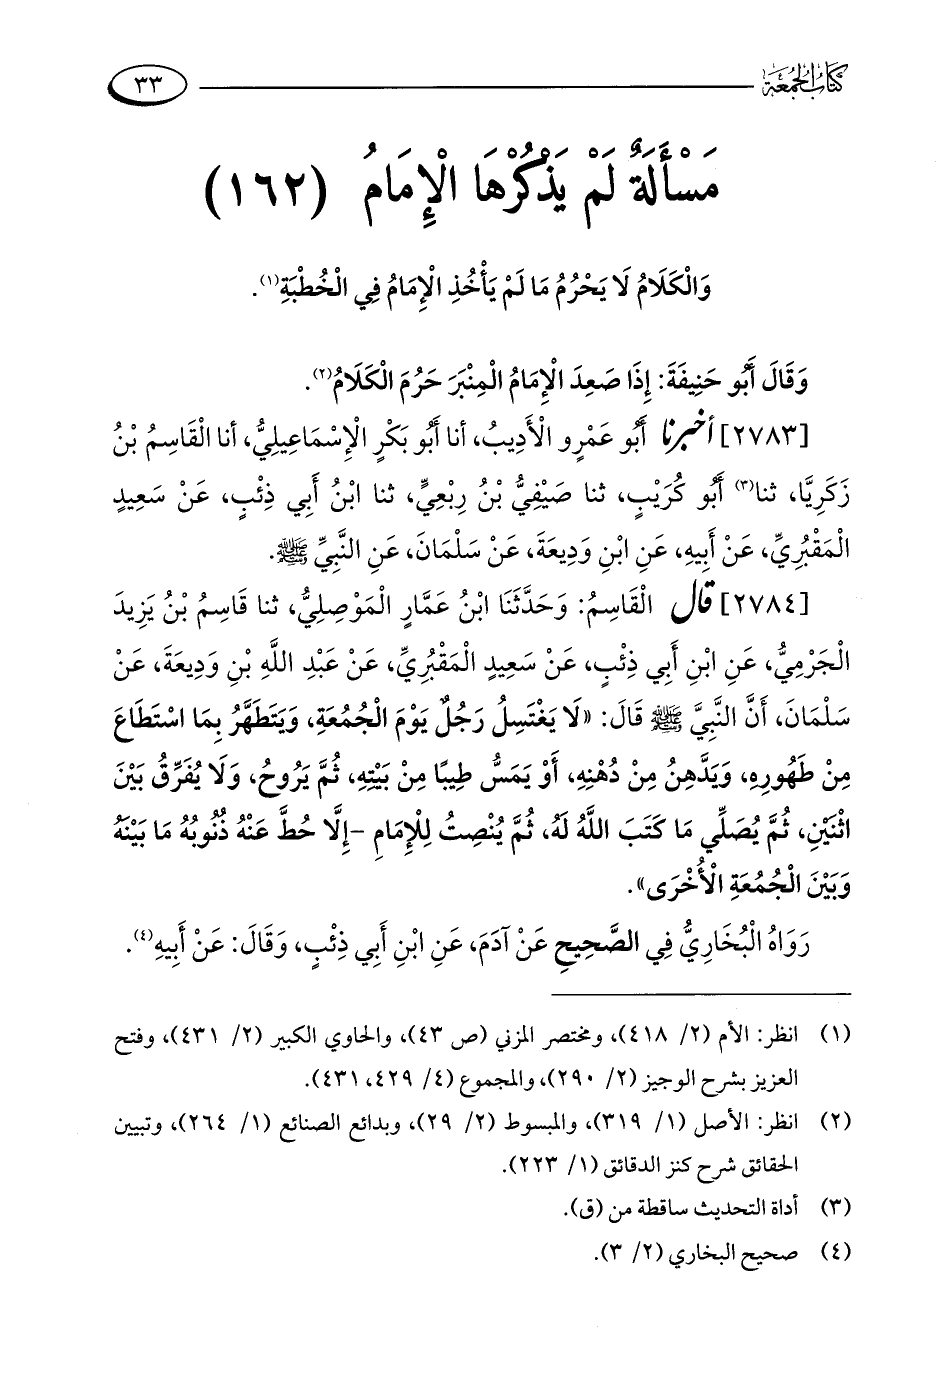 كتاب الجمعة
٣٣
مَسْأَلَةٌ لَمْ يَذْكُرْهَا الْإِمَامُ (١٦٢)
وَالْكَلَامُ لَا يَحْرُمُ مَا لَمْ يَأْخُذِ الْإِمَامُ فِي الْخُطْبَةِ(١).
وَقَالَ أَبُو حَنِيفَةَ: إِذَا صَعِدَ الْإِمَامُ الْمِنْبَرَ حَرُمَ الْكَلَامُ(٢).
[٢٧٨٣] أخبرنا أَبُو عَمْرٍو الْأَدِيبُ، أنا أَبُو بَكْرٍ الْإِسْمَاعِيلِيُّ، أنا الْقَاسِمُ بْنُ
زَكَرِيَّا، ثنا(٣) أَبُو كُرَيْبٍ، ثنا صَيْفِيُّ بْنُ رِبْعِيٍّ، ثنا ابْنُ أَبِي ذِئْبٍ، عَنْ سَعِيدٍ
الْمَقْبُرِيِّ، عَنْ أَبِيهِ، عَنِ ابْنِ وَدِيعَةَ، عَنْ سَلْمَانَ، عَنِ النَّبِيِّ ﷺ.
[٢٧٨٤] قال الْقَاسِمُ: وَحَدَّثَنَا ابْنُ عَمَّارٍ الْمَوْصِلِيُّ، ثنا قَاسِمُ بْنُ يَزِيدَ
الْجَرْمِيُّ، عَنِ ابْنِ أَبِي ذِئْبٍ، عَنْ سَعِيدٍ الْمَقْبُرِيِّ، عَنْ عَبْدِ اللَّهِ بْنِ وَدِيعَةَ، عَنْ
سَلْمَانَ، أَنَّ النَّبِيَّ ﷺ قَالَ: «لَا يَغْتَسِلُ رَجُلٌ يَوْمَ الْجُمُعَةِ، وَيَتَطَهَّرُ بِمَا اسْتَطَاعَ
مِنْ طَهُورِهِ، وَيَدَّهِنُ مِنْ دُهْنِهِ، أَوْ يَمَسُّ طِيبًا مِنْ بَيْتِهِ، ثُمَّ يَرُوحُ، وَلَا يُفَرِّقُ بَيْنَ
اثْنَيْنِ، ثُمَّ يُصَلِّي مَا كَتَبَ اللَّهُ لَهُ، ثُمَّ يُنْصِتُ لِلْإِمَامِ -إِلَّا حُطَّ عَنْهُ ذُنُوبُهُ مَا بَيْنَهُ
وَبَيْنَ الْجُمُعَةِ الْأُخْرَى».
رَوَاهُ الْبُخَارِيُّ فِي الصَّحِيحِ عَنْ آدَمَ، عَنِ ابْنِ أَبِي ذِئْبٍ، وَقَالَ: عَنْ أَبِيهِ(٤).
(١) انظر: الأم (٢/ ٤١٨)، ومختصر المزني (ص ٤٣)، والحاوي الكبير (٢/ ٤٣١)، وفتح
العزيز بشرح الوجيز (٢/ ٢٩٠)، والمجموع (٤/ ٤٢٩، ٤٣١).
(٢) انظر: الأصل (١/ ٣١٩)، والمبسوط (٢/ ٢٩)، وبدائع الصنائع (١/ ٢٦٤)، وتبيين
الحقائق شرح كنز الدقائق (١/ ٢٢٣).
(٣) أداة التحديث ساقطة من (ق).
(٤) صحيح البخاري (٢/ ٣).